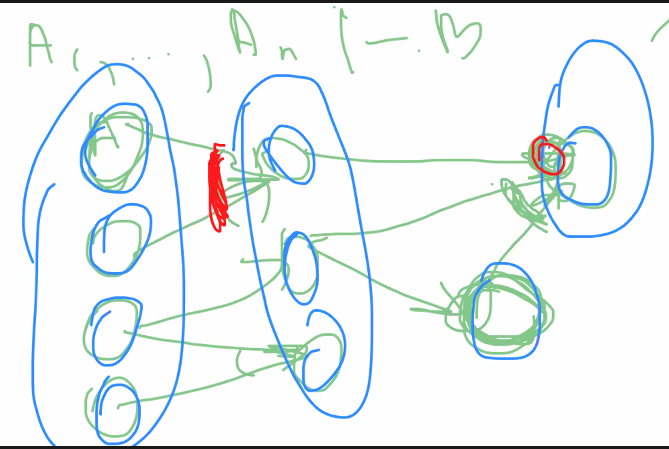 A₁, ..., Aₙ ⊢ B